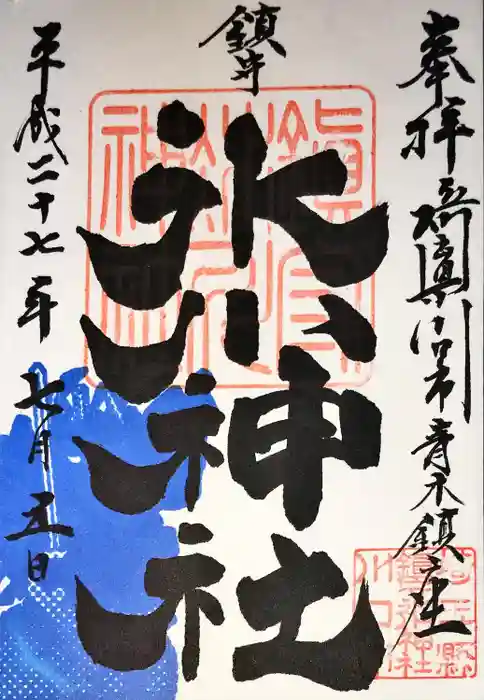 奉拝 埼玉県川口市青木鎮座
鎮守
氷川神社
平成二十七年 七月五日